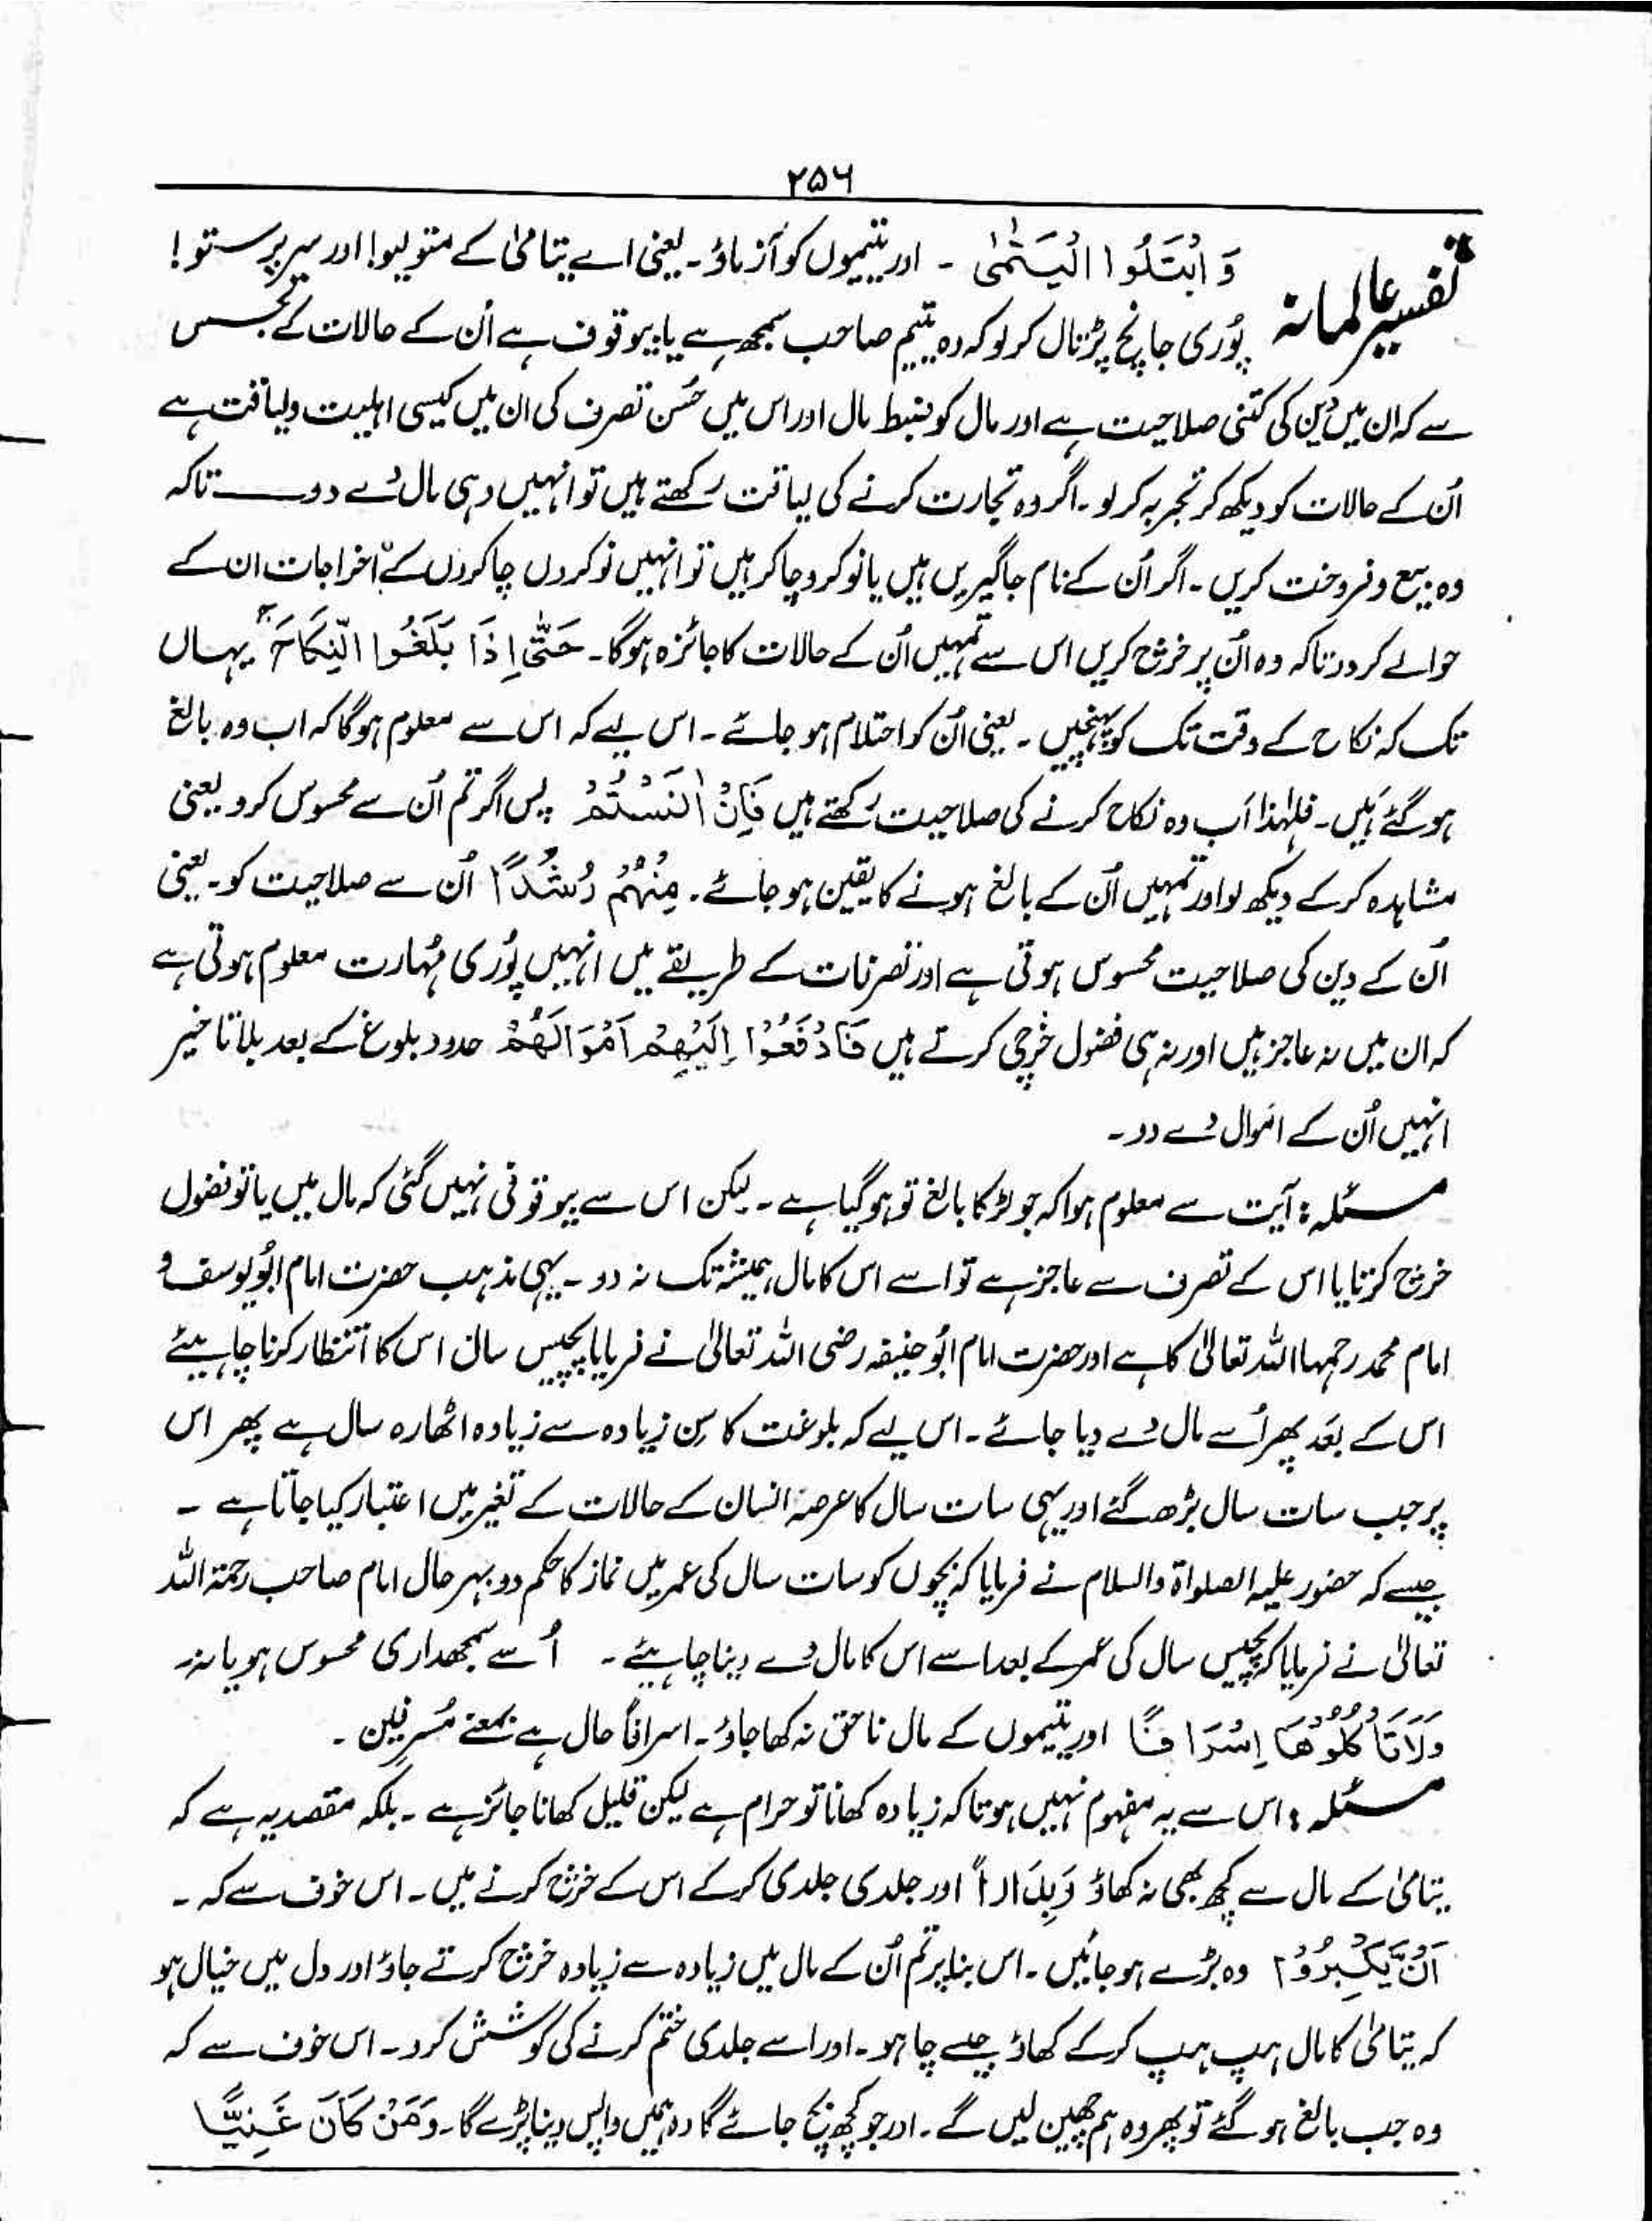 ۲۵۶
تفسیر عالمانہ
وَ ابْتَلُوا الْیَتٰمٰی ۔ اور یتیموں کو آزماؤ۔ یعنی اے یتامیٰ کے متولیو! اور سرپرستو!
پُوری جانچ پڑتال کرلو کہ وہ یتیم صاحب سمجھ ہے یا بیوقوف ہے اُن کے حالات کے تجسس
سے کہ ان میں دین کی کتنی صلاحیت ہے اور مال کو ضبط مال اور اس میں حُسن تصرف کی ان میں کیسی اہلیت ولیاقت ہے
اُن کے حالات کو دیکھ کر تجربہ کرلو۔ اگر وہ تجارت کرنے کی لیاقت رکھتے ہیں تو انہیں وہی مال دے دو۔ تاکہ
وہ بیع و فروخت کریں۔ اگر اُن کے نام جاگیریں ہیں یا نوکر و چاکر ہیں تو انہیں نوکروں چاکروں کے اخراجات ان کے
حوالے کردو تاکہ وہ اُن پر خرچ کریں اس سے تمہیں اُن کے حالات کا جائزہ ہوگا۔ حَتّٰی اِذَا بَلَغُوا النِّکَاحَ ۚ یہاں
تک کہ نکاح کے وقت تک کو پہنچیں۔ یعنی اُن کو احتلام ہو جائے۔ اس لیے کہ اس سے معلوم ہوگا کہ اب وہ بالغ
ہوگئے ہیں۔ فلہٰذا اَب وہ نکاح کرنے کی صلاحیت رکھتے ہیں فَاِنْ اٰنَسْتُمْ پس اگر تم اُن سے محسوس کرو یعنی
مشاہدہ کرکے دیکھ لو اور تمہیں اُن کے بالغ ہونے کا یقین ہو جائے۔ مِنْہُمْ رُشْدًا اُن سے صلاحیت کو۔ یعنی
اُن کے دین کی صلاحیت محسوس ہوتی ہے اور تصرفات کے طریقے میں انہیں پُوری مُہارت معلوم ہوتی ہے
کہ ان میں نہ عاجز ہیں اور نہ ہی فضول خرچی کرتے ہیں فَادْفَعُوْا اِلَیْہِمْ اَمْوَالَہُمْ حدود بلوغ کے بعد بلا تاخیر
انہیں اُن کے اموال دے دو۔
مسئلہ: آیت سے معلوم ہوا کہ جو لڑکا بالغ تو ہوگیا ہے۔ لیکن اس سے بیوقوفی نہیں گئی کہ مال میں یا تو فضول
خرچ کرتا یا اس کے تصرف سے عاجز ہے تو اسے اس کا مال ہمیشہ تک نہ دو۔ یہی مذہب حضرت امام ابُویوسف و
امام محمد رحمہما اللہ تعالیٰ کا ہے اور حضرت امام ابُوحنیفہ رضی اللہ تعالیٰ نے فرمایا پچیس سال اس کا انتظار کرنا چاہیئے
اس کے بعد پھر اُسے مال دے دیا جائے۔ اس لیے کہ بلوغت کا سِن زیادہ سے زیادہ اٹھارہ سال ہے پھر اس
پر جب سات سال بڑھ گئے اور یہی سات سال کا عرصہ انسان کے حالات کے تغیر میں اعتبار کیا جاتا ہے ۔
جیسے کہ حضور علیہ الصلواۃ والسلام نے فرمایا کہ بچوں کو سات سال کی عمر میں نماز کا حکم دو بہرحال امام صاحب رحمۃ اللہ
تعالیٰ نے فرمایا کہ پچیس سال کی عمر کے بعد اسے اس کا مال دے دینا چاہیئے۔ اُسے سمجھداری محسوس ہو یا نہ
وَلَا تَاْکُلُوْہَا اِسْرَافًا اور یتیموں کے مال ناحق نہ کھا جاؤ۔ اسرافاً حال ہے بمعنے مُسرفین ۔
مسئلہ: اس سے یہ مفہوم نہیں ہوتا کہ زیادہ کھانا تو حرام ہے لیکن قلیل کھانا جائز ہے ۔ بلکہ مقصد یہ ہے کہ
یتامیٰ کے مال سے کچھ بھی نہ کھاؤ وَّبِدَارًا اور جلدی جلدی کرکے اس کے خرچ کرنے میں۔ اس خوف سے کہ ۔
اَنْ یَّکْبَرُوْا وہ بڑے ہو جائیں۔ اس بنا پر تم اُن کے مال میں زیادہ سے زیادہ خرچ کرتے جاؤ اور دل میں خیال ہو
کہ یتامیٰ کا مال ہپ ہپ کرکے کھاؤ جیسے چاہو۔ اور اسے جلدی ختم کرنے کی کوشش کرو۔ اس خوف سے کہ
وہ جب بالغ ہوگئے تو پھر وہ ہم چھین لیں گے۔ اور جو کچھ بچ جائے گا وہ ہمیں واپس دینا پڑے گا۔ وَمَنْ کَانَ غَنِیًّا